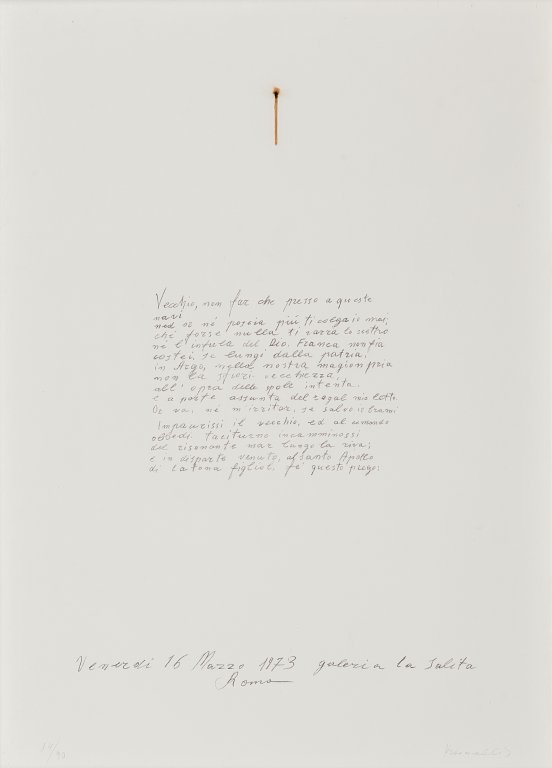 Vecchio, non far che presso a queste
navi
ned or né poscia più ti colga io mai;
che forse nulla ti varrà lo scettro
né l'infula del Dio. Franca non fia
costei, se lungi dalla patria,
in Argo, nella nostra magion pria
non la sfiori vecchiezza,
all'opra delle spole intenta.
e a parte assunta del regal mio letto.
Or va, né m'irritar, se salvo ir brami
Impaurissi il vecchio, ed al comando
obbedì. Taciturno incamminossi
del risonante mar lungo la riva;
e in disparte venuto, al santo Apollo
di Latona figliol, fe' questo prego;
Venerdi 16 Marzo 1973 galeria la Salita
Roma
/90